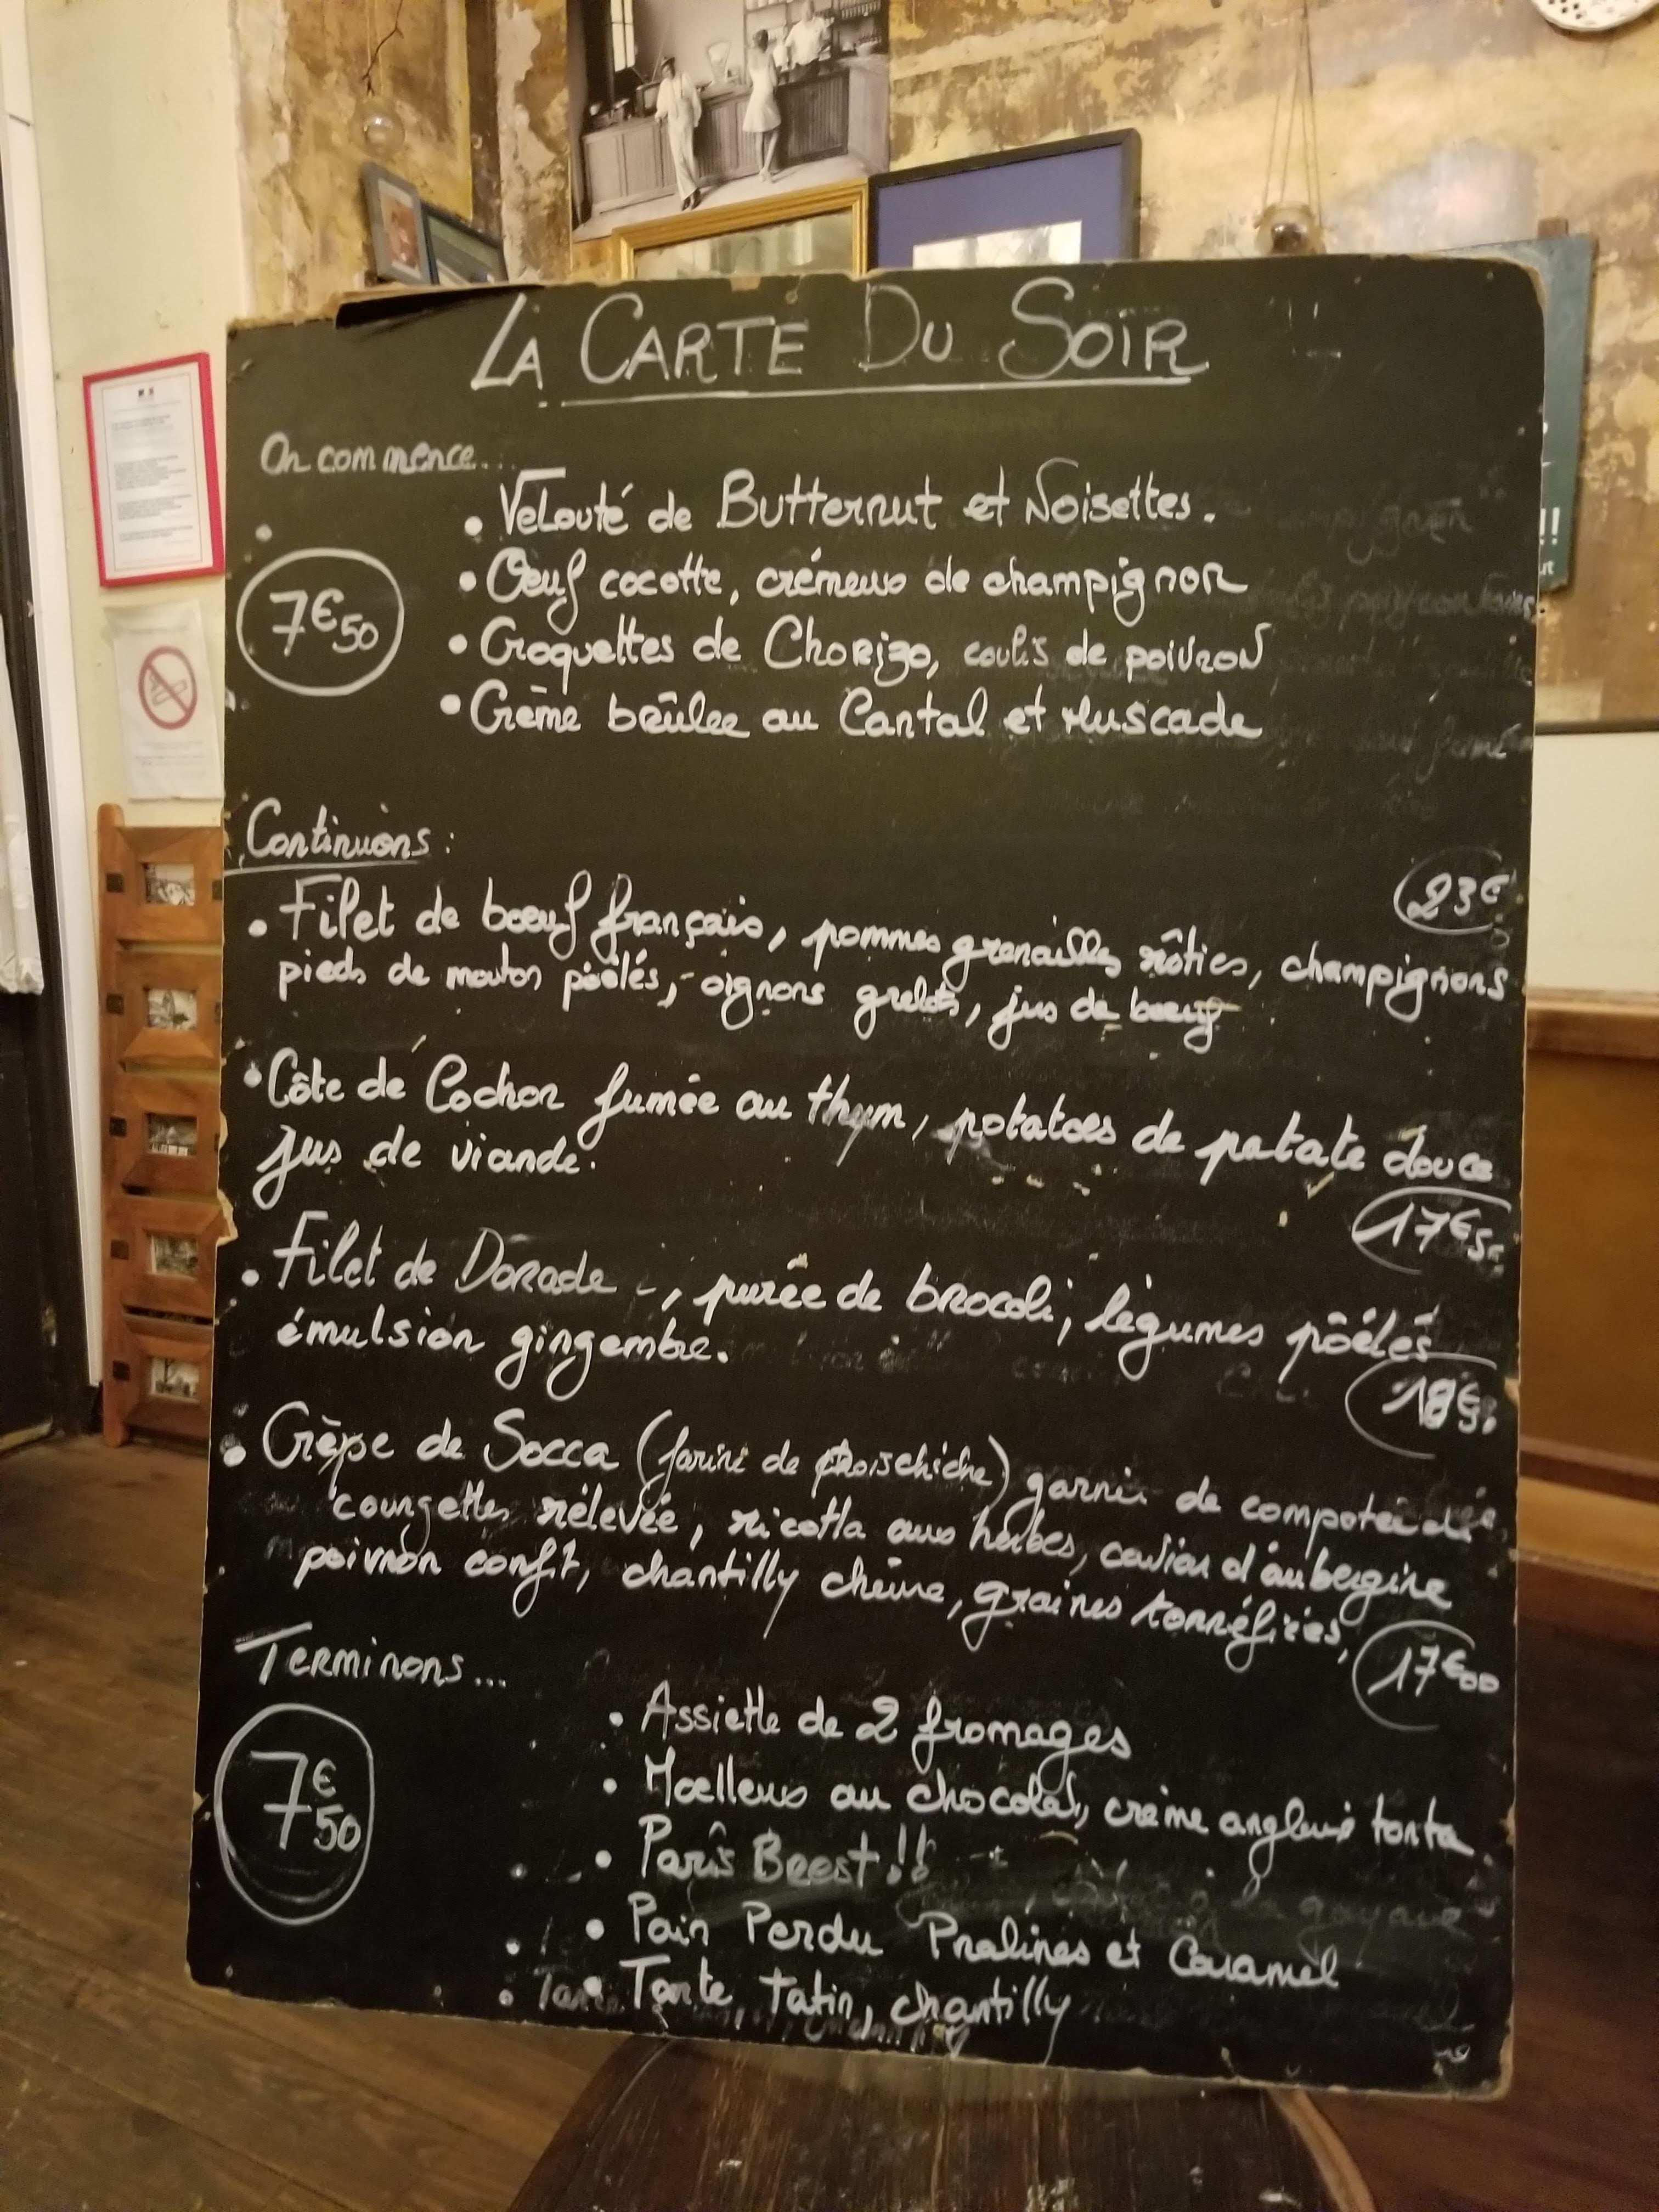 LA CARTE DU SOIR
On commence...
• Velouté de Butternut et Noisettes.
• Oeuf cocotte, crémeux de champignon
7€50
• Croquettes de Chorizo, coulis de poivron
• Crème brûlée au Cantal et Muscade
Continuons :
23€
• Filet de boeuf français, pommes grenailles rôties, champignons
pieds de mouton poêlés, oignons grelots, jus de boeuf
• Côte de Cochon fumée au thym, potatoes de patate douce
jus de viande.
17€5
• Filet de Dorade -, purée de brocoli, légumes pôélés
émulsion gingembre.
18€
• Crèpe de Socca (farine de poischiche) garnie de compotée de
courgettes rélevée, ricotta aux herbes, caviar d'aubergine
poivron confit, chantilly chèvre, graines torréfiées,
17€00
Terminons...
• Assiette de 2 fromages
• Moelleux au chocolat, crème anglaise tonka
7€50
• Paris Brest !!
• Pain Perdu Pralines et Caramel
• Tarte Tatin, chantilly